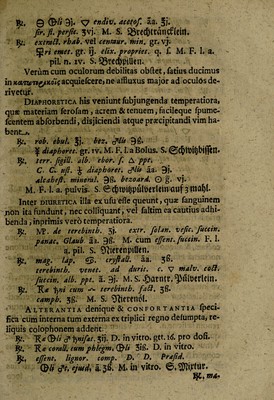 ℞. ⊖ Oli ℈j. ▽ endiv. acetos. āā. ℥j.
sir. fl. persic. ʒvj. M. S. Brechtráncklein.
℞. extract. rhab. vel centaur. min. gr. vj.
☿ri emet. gr. ij. elix. propriet. q. s. M. F. l. a.
pil. n. IV. S. Brechpillen.
Verùm cum oculorum debilitas obstet, satius ducimus
in κατωτερικοῖς acquiescere, ne affluxus major ad oculos de-
rivetur.
DIAPHORETICA his veniunt subjungenda temperatiora,
quæ materiam serosam, acrem & tenuem, facileque spume-
scentem absorbendi, disjiciendi atque præcipitandi vim ha-
bent.
℞. rob. ebul. ℥j. bez. ℥ß.
diaphoret. gr. IV. M. F. l. a. Bolus. S. Schwitzbissen.
℞. terr. sigill. alb. rhor. s. ppt.
C. C. ust. diaphoret. āā. ℈j.
alcahest. minoral. ℈ß. bezoard. gr. vj.
M. F. l. a. pulvis. S. Schwitzpülverlein auf 3 mahl.
Inter DIURETICA illa ex usu esse queunt, quæ sanguinem
non ita fundunt, nec colliquant, vel saltim ea cautius adhi-
benda, inprimis verò temperatiora.
℞. de terebinth. ʒj. extr. solan. vesic. succin.
panac. Glaub āā. ℈ß. M. cum essent. succin. F. l.
a. pil. S. Nierenpillen.
℞. mag. lap. crystall. āā. ʒß.
terebinth. venet. ad duric. c. ▽ malv. coct.
succin. alb. ppt. ā. ℈j. M. S. Harntr. Pülverlein.
℞. cum terebinth. fact. ʒß.
camph. ʒß. M. S. Nierenöl.
ALTERANTIA denique & CONFORTANTIA speci-
fica cum interna tum externa ex triplici regno desumpta, re-
liquis colophonem addent.
℞. Oli hnisat. ʒij. D. in vitro. gtt. 16. pro dosi.
℞. conall. cum phlegm. Oli ʒiß. D. in vitro.
℞. essent. lignor. comp. D. D. Præsid.
Oli, ejusd. ā ʒß. M. in vitro. S. Mixtur.
℞. ma,